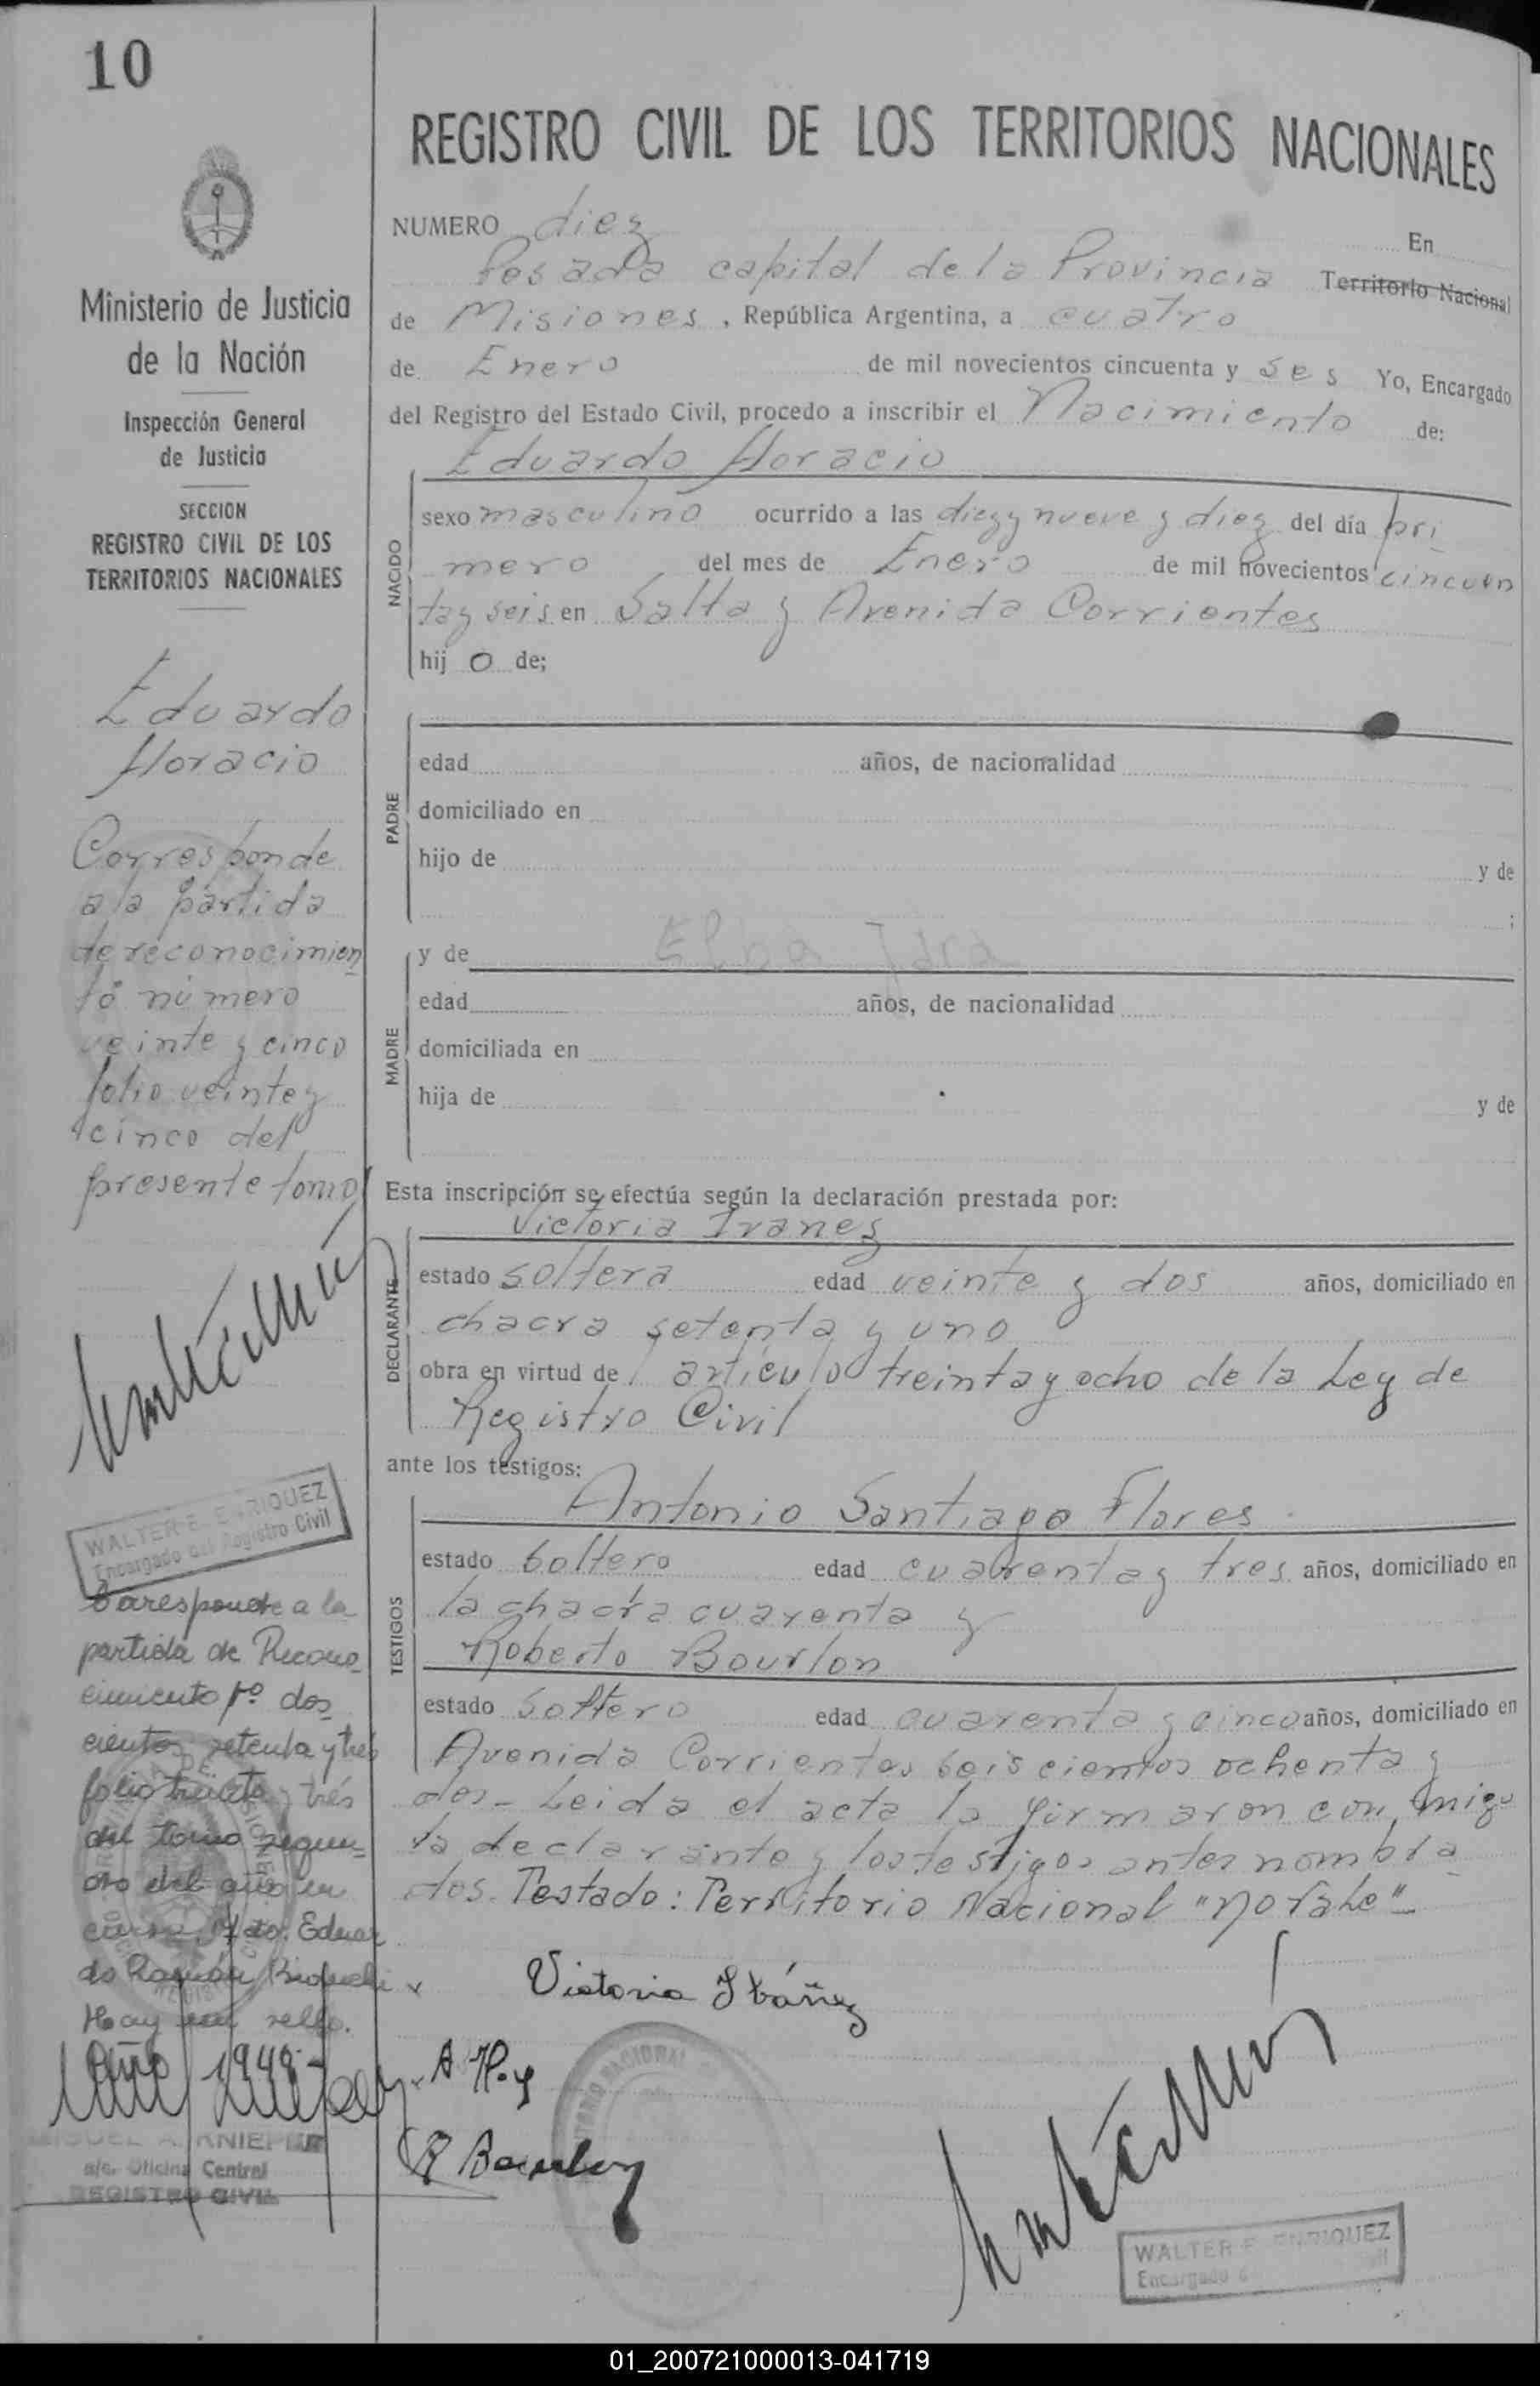 10
Ministerio de Justicia
de la Nación
Inspección General
de Justicia
SECCION
REGISTRO CIVIL DE LOS
TERRITORIOS NACIONALES
Eduardo
Horacio
Corresponde
a la partida
de reconocimien
to número
veinte y cinco
folio veinte y
cinco del
presente tomo
WALTER E. ENRIQUEZ
Encargado del Registro Civil
Corresponde a la
partida de Recono-
cimiento nº dos-
cientos setenta y tres
folio treinta y trés
del tomo segun-
do del año en
curso. Eduar
do Ramón
Hay un sello.
Año 1949-
a/c. Oficina Central
REGISTRO CIVIL
REGISTRO CIVIL DE LOS TERRITORIOS NACIONALES
NUMERO diez En
Posada capital de la Provincia Territorio Nacional
de Misiones, República Argentina, a cuatro
de Enero de mil novecientos cincuenta y ses Yo, Encargado
del Registro del Estado Civil, procedo a inscribir el Nacimiento de:
Eduardo Horacio
NACIDO
sexo masculino ocurrido a las diez y nueve y diez del día pri
mero del mes de Enero de mil novecientos cincuen
ta y seis en Salta y Avenida Corrientes
hij o de;
PADRE
edad años, de nacionalidad
domiciliado en
hijo de y de
;
MADRE
y de Elba Jara
edad años, de nacionalidad
domiciliada en
hija de y de
Esta inscripción se efectúa según la declaración prestada por:
Victoria Ivanez
DECLARANTE
estado soltera edad veinte y dos años, domiciliado en
chacra setenta y uno
obra en virtud de l artículo treinta y ocho de la Ley de
Registro Civil
ante los testigos:
Antonio Santiago Flores
TESTIGOS
estado soltero edad cuarenta y tres años, domiciliado en
la chacra cuarenta y
Roberto Bourlon
estado soltero edad cuarenta y cinco años, domiciliado en
Avenida Corrientes seis cientos ochenta y
dos- Leida el acta la firmaron con migo
la declarante y los testigos antes nombra
dos. Testado: Territorio Nacional "No Vale"-
Victoria Ibáñez
WALTER E. ENRIQUEZ
Encargado
01_200721000013-041719